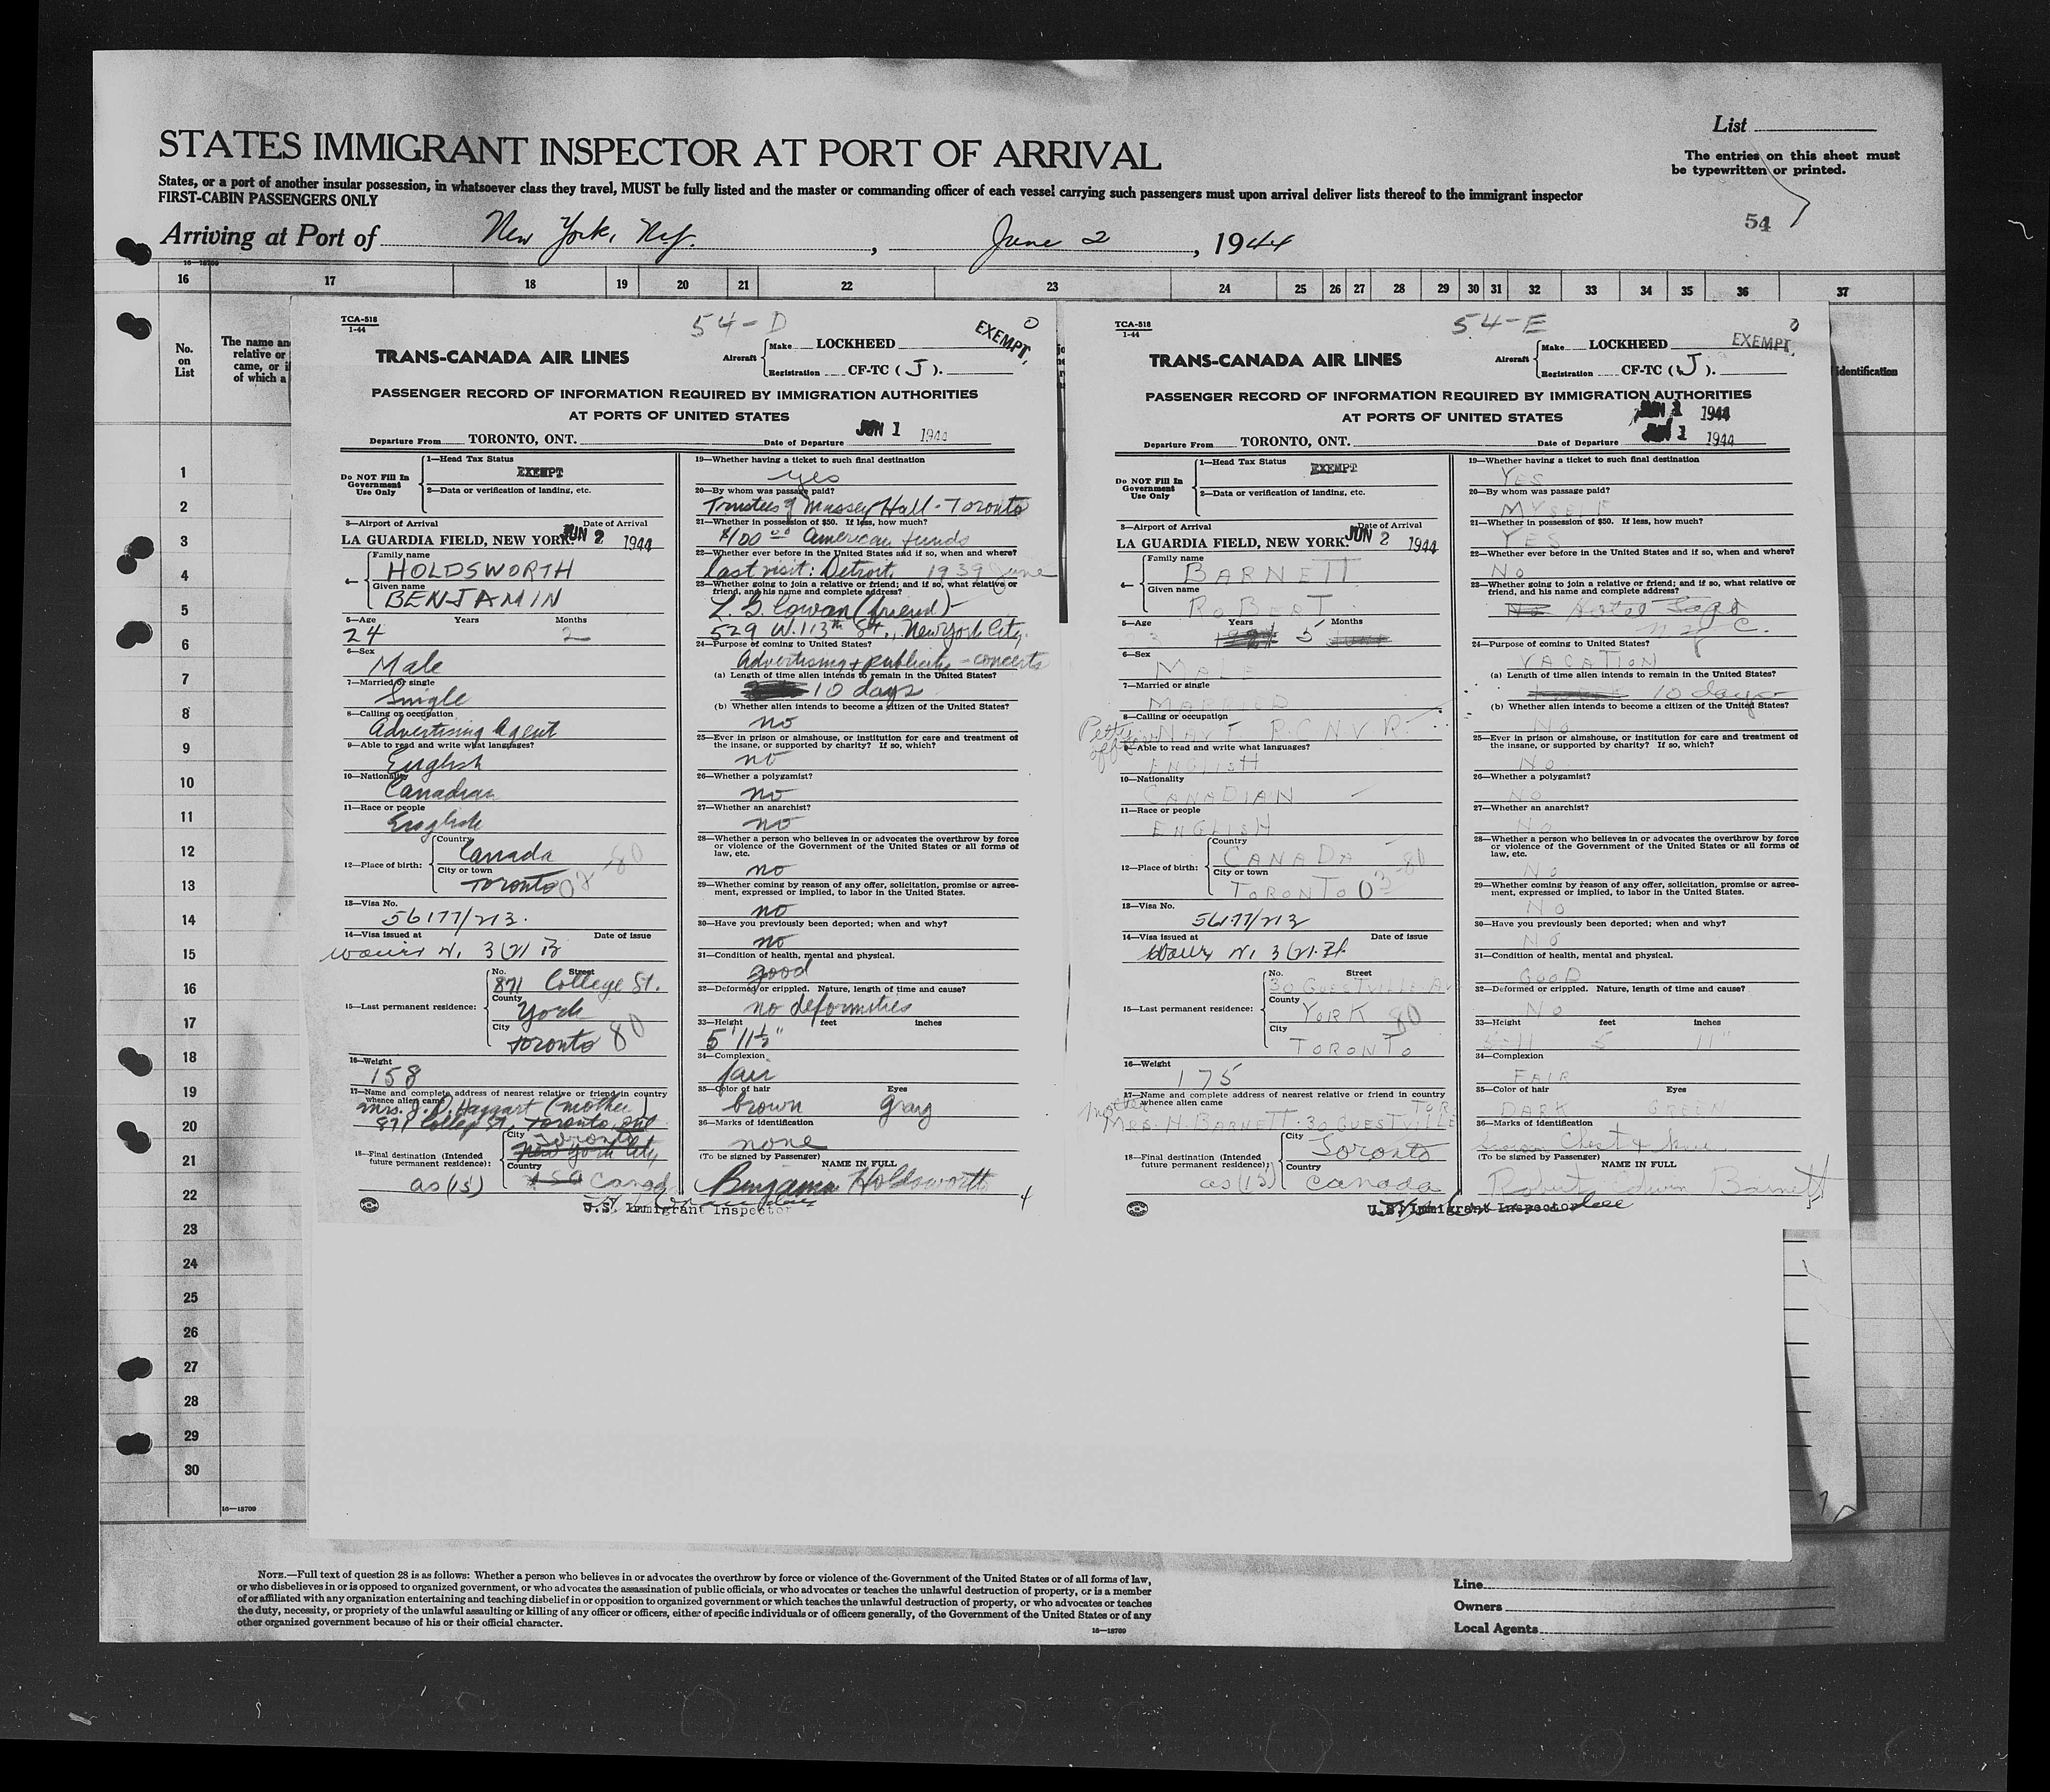 List
STATES IMMIGRANT INSPECTOR AT PORT OF ARRIVAL
The entries on this sheet must
be typewritten or printed.
States, or a port of another insular possession, in whatsoever class they travel, MUST be fully listed and the master or commanding officer of each vessel carrying such passengers must upon arrival deliver lists thereof to the immigrant inspector
FIRST-CABIN PASSENGERS ONLY
54
Arriving at Port of New York, N.Y., June 2, 1944
16—18709
16 17 18 19 20 21 22 23 24 25 26 27 28 29 30 31 32 33 34 35 36 37
No.
on
List
The name and
relative or
came, or i
of which a
identification
1
2
3
4
5
6
7
8
9
10
11
12
13
14
15
16
17
18
19
20
21
22
23
24
25
26
27
28
29
30
16—18709
TCA-518
1-44
54-D
EXEMPT.
TRANS-CANADA AIR LINES
Aircraft
Make LOCKHEED
Registration CF-TC (J).
PASSENGER RECORD OF INFORMATION REQUIRED BY IMMIGRATION AUTHORITIES
AT PORTS OF UNITED STATES
Departure From TORONTO, ONT. Date of Departure JUN 1 1944
Do NOT Fill In
Government
Use Only
1—Head Tax Status
EXEMPT
2—Data or verification of landing, etc.
3—Airport of Arrival Date of Arrival
LA GUARDIA FIELD, NEW YORK. JUN 2 1944
4—
Family name
HOLDSWORTH
Given name
BENJAMIN
5—Age Years Months
24 2
6—Sex
Male
7—Married or single
Single
8—Calling or occupation
Advertising Agent
9—Able to read and write what languages?
English
10—Nationality
Canadian
11—Race or people
English
12—Place of birth:
Country
Canada
City or town
Toronto
13—Visa No.
56177/213.
14—Visa issued at Date of issue
15—Last permanent residence:
No. Street
871 College St.
County
York
City
Toronto 80
16—Weight
158
17—Name and complete address of nearest relative or friend in country
whence alien came
Mrs. J. D. Haggart (mother)
871 College St., Toronto, Ont
18—Final destination (Intended
future permanent residence):
City
Toronto
New York City
Country
as (15) USA Canada
19—Whether having a ticket to such final destination
yes
20—By whom was passage paid?
Trustees of Massey Hall - Toronto
21—Whether in possession of $50. If less, how much?
$100.00 American funds
22—Whether ever before in the United States and if so, when and where?
last visit: Detroit, 1939 June
23—Whether going to join a relative or friend; and if so, what relative or
friend, and his name and complete address?
L. B. Cowan (friend) -
529 W. 113th St., New York City.
24—Purpose of coming to United States?
Advertising + publicity - concerts
(a) Length of time alien intends to remain in the United States?
10 days
(b) Whether alien intends to become a citizen of the United States?
no
25—Ever in prison or almshouse, or institution for care and treatment of
the insane, or supported by charity? If so, which?
no
26—Whether a polygamist?
no
27—Whether an anarchist?
no
28—Whether a person who believes in or advocates the overthrow by force
or violence of the Government of the United States or all forms of
law, etc.
no
29—Whether coming by reason of any offer, solicitation, promise or agree-
ment, expressed or implied, to labor in the United States.
no
30—Have you previously been deported; when and why?
no
31—Condition of health, mental and physical.
good
32—Deformed or crippled. Nature, length of time and cause?
no deformities
33—Height feet inches
5' 11½"
34—Complexion
fair
35—Color of hair Eyes
brown gray
36—Marks of identification
none
(To be signed by Passenger) NAME IN FULL
Benjamin Holdsworth
U.S. Immigrant Inspector
TCA-518
1-44
54-E
EXEMPT.
TRANS-CANADA AIR LINES
Aircraft
Make LOCKHEED
Registration CF-TC (J).
PASSENGER RECORD OF INFORMATION REQUIRED BY IMMIGRATION AUTHORITIES
AT PORTS OF UNITED STATES
JUN 1 1944
Departure From TORONTO, ONT. Date of Departure JUN 1 1944
Do NOT Fill In
Government
Use Only
1—Head Tax Status
EXEMPT
2—Data or verification of landing, etc.
3—Airport of Arrival Date of Arrival
LA GUARDIA FIELD, NEW YORK. JUN 2 1944
4—
Family name
BARNETT
Given name
ROBERT
5—Age Years Months
23 5
6—Sex
MALE
7—Married or single
MARRIED
8—Calling or occupation
Petty officer NAVY R.C.N.V.R.
9—Able to read and write what languages?
ENGLISH
10—Nationality
CANADIAN
11—Race or people
ENGLISH
12—Place of birth:
Country
CANADA
City or town
TORONTO
13—Visa No.
56177/213
14—Visa issued at Date of issue
15—Last permanent residence:
No. Street
30 GUESTVILLE AV
County
YORK 80
City
TORONTO
16—Weight
175
17—Name and complete address of nearest relative or friend in country
whence alien came
mother TOR.
MRS. H. BARNETT. 30 GUESTVILLE
18—Final destination (Intended
future permanent residence):
City
Toronto
Country
as (15) Canada
19—Whether having a ticket to such final destination
YES
20—By whom was passage paid?
MYSELF
21—Whether in possession of $50. If less, how much?
YES
22—Whether ever before in the United States and if so, when and where?
NO
23—Whether going to join a relative or friend; and if so, what relative or
friend, and his name and complete address?
No Hotel
N.Y.C.
24—Purpose of coming to United States?
VACATION
(a) Length of time alien intends to remain in the United States?
10 days
(b) Whether alien intends to become a citizen of the United States?
NO
25—Ever in prison or almshouse, or institution for care and treatment of
the insane, or supported by charity? If so, which?
NO
26—Whether a polygamist?
NO
27—Whether an anarchist?
NO
28—Whether a person who believes in or advocates the overthrow by force
or violence of the Government of the United States or all forms of
law, etc.
NO
29—Whether coming by reason of any offer, solicitation, promise or agree-
ment, expressed or implied, to labor in the United States.
NO
30—Have you previously been deported; when and why?
NO
31—Condition of health, mental and physical.
GOOD
32—Deformed or crippled. Nature, length of time and cause?
NO
33—Height feet inches
5-11 5 11"
34—Complexion
FAIR
35—Color of hair Eyes
DARK GREEN
36—Marks of identification
Chest &
(To be signed by Passenger) NAME IN FULL
Robert Edwin Barnett
U.S. Immigrant Inspector
NOTE.—Full text of question 28 is as follows: Whether a person who believes in or advocates the overthrow by force or violence of the Government of the United States or of all forms of law,
or who disbelieves in or is opposed to organized government, or who advocates the assassination of public officials, or who advocates or teaches the unlawful destruction of property, or is a member
of or affiliated with any organization entertaining and teaching disbelief in or opposition to organized government or which teaches the unlawful destruction of property, or who advocates or teaches
the duty, necessity, or propriety of the unlawful assaulting or killing of any officer or officers, either of specific individuals or of officers generally, of the Government of the United States or of any
other organized government because of his or their official character.
16—18709
Line
Owners
Local Agents